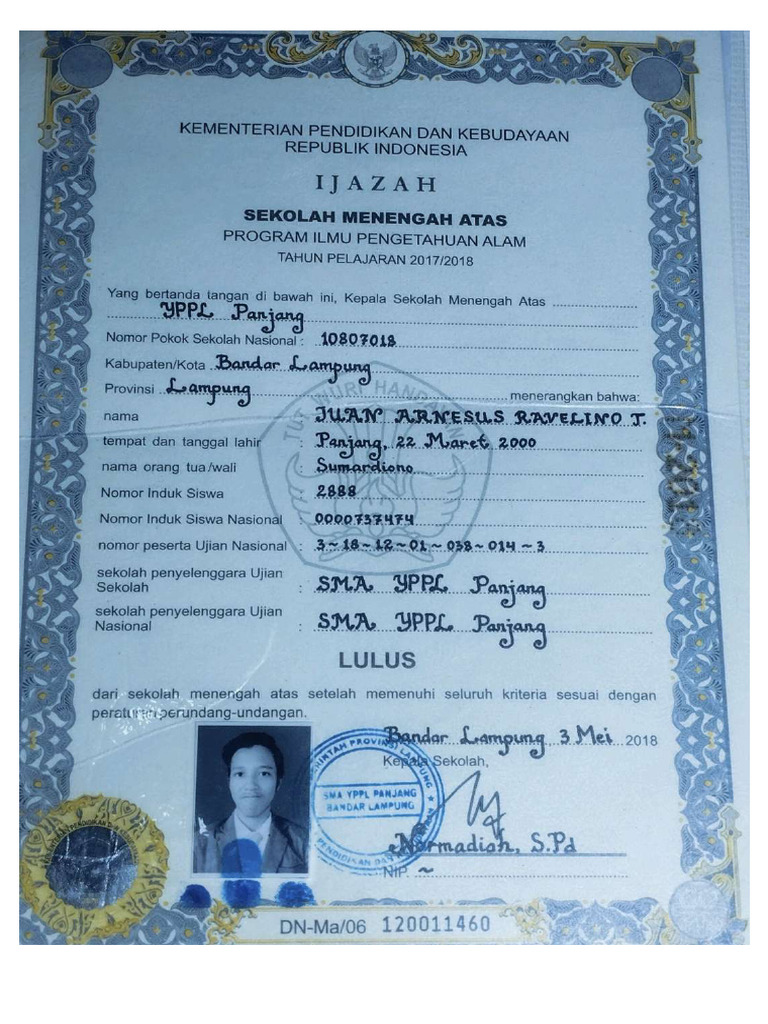 KEMENTERIAN PENDIDIKAN DAN KEBUDAYAAN
REPUBLIK INDONESIA
IJAZAH
SEKOLAH MENENGAH ATAS
PROGRAM ILMU PENGETAHUAN ALAM
TAHUN PELAJARAN 2017/2018
Yang bertanda tangan di bawah ini, Kepala Sekolah Menengah Atas
YPPL Panjang
Nomor Pokok Sekolah Nasional : 10807018
Kabupaten/Kota Bandar Lampung
Provinsi Lampung menerangkan bahwa:
TUT WURI HANDAYANI
nama : JUAN ARNESUS RAVELINO T.
tempat dan tanggal lahir : Panjang, 22 Maret 2000
nama orang tua/wali : Sumardiono
Nomor Induk Siswa : 2888
Nomor Induk Siswa Nasional : 0000737474
nomor peserta Ujian Nasional : 3~18~12~01~038~014~3
sekolah penyelenggara Ujian
Sekolah : SMA YPPL Panjang
sekolah penyelenggara Ujian
Nasional : SMA YPPL Panjang
LULUS
dari sekolah menengah atas setelah memenuhi seluruh kriteria sesuai dengan
peraturan perundang-undangan.
Bandar Lampung 3 Mei 2018
Kepala Sekolah,
PEMERINTAH PROVINSI LAMPUNG
SMA YPPL PANJANG
BANDAR LAMPUNG
PENDIDIKAN DAN
Normadiah, S.Pd
NIP. ~
DN-Ma/06 120011460